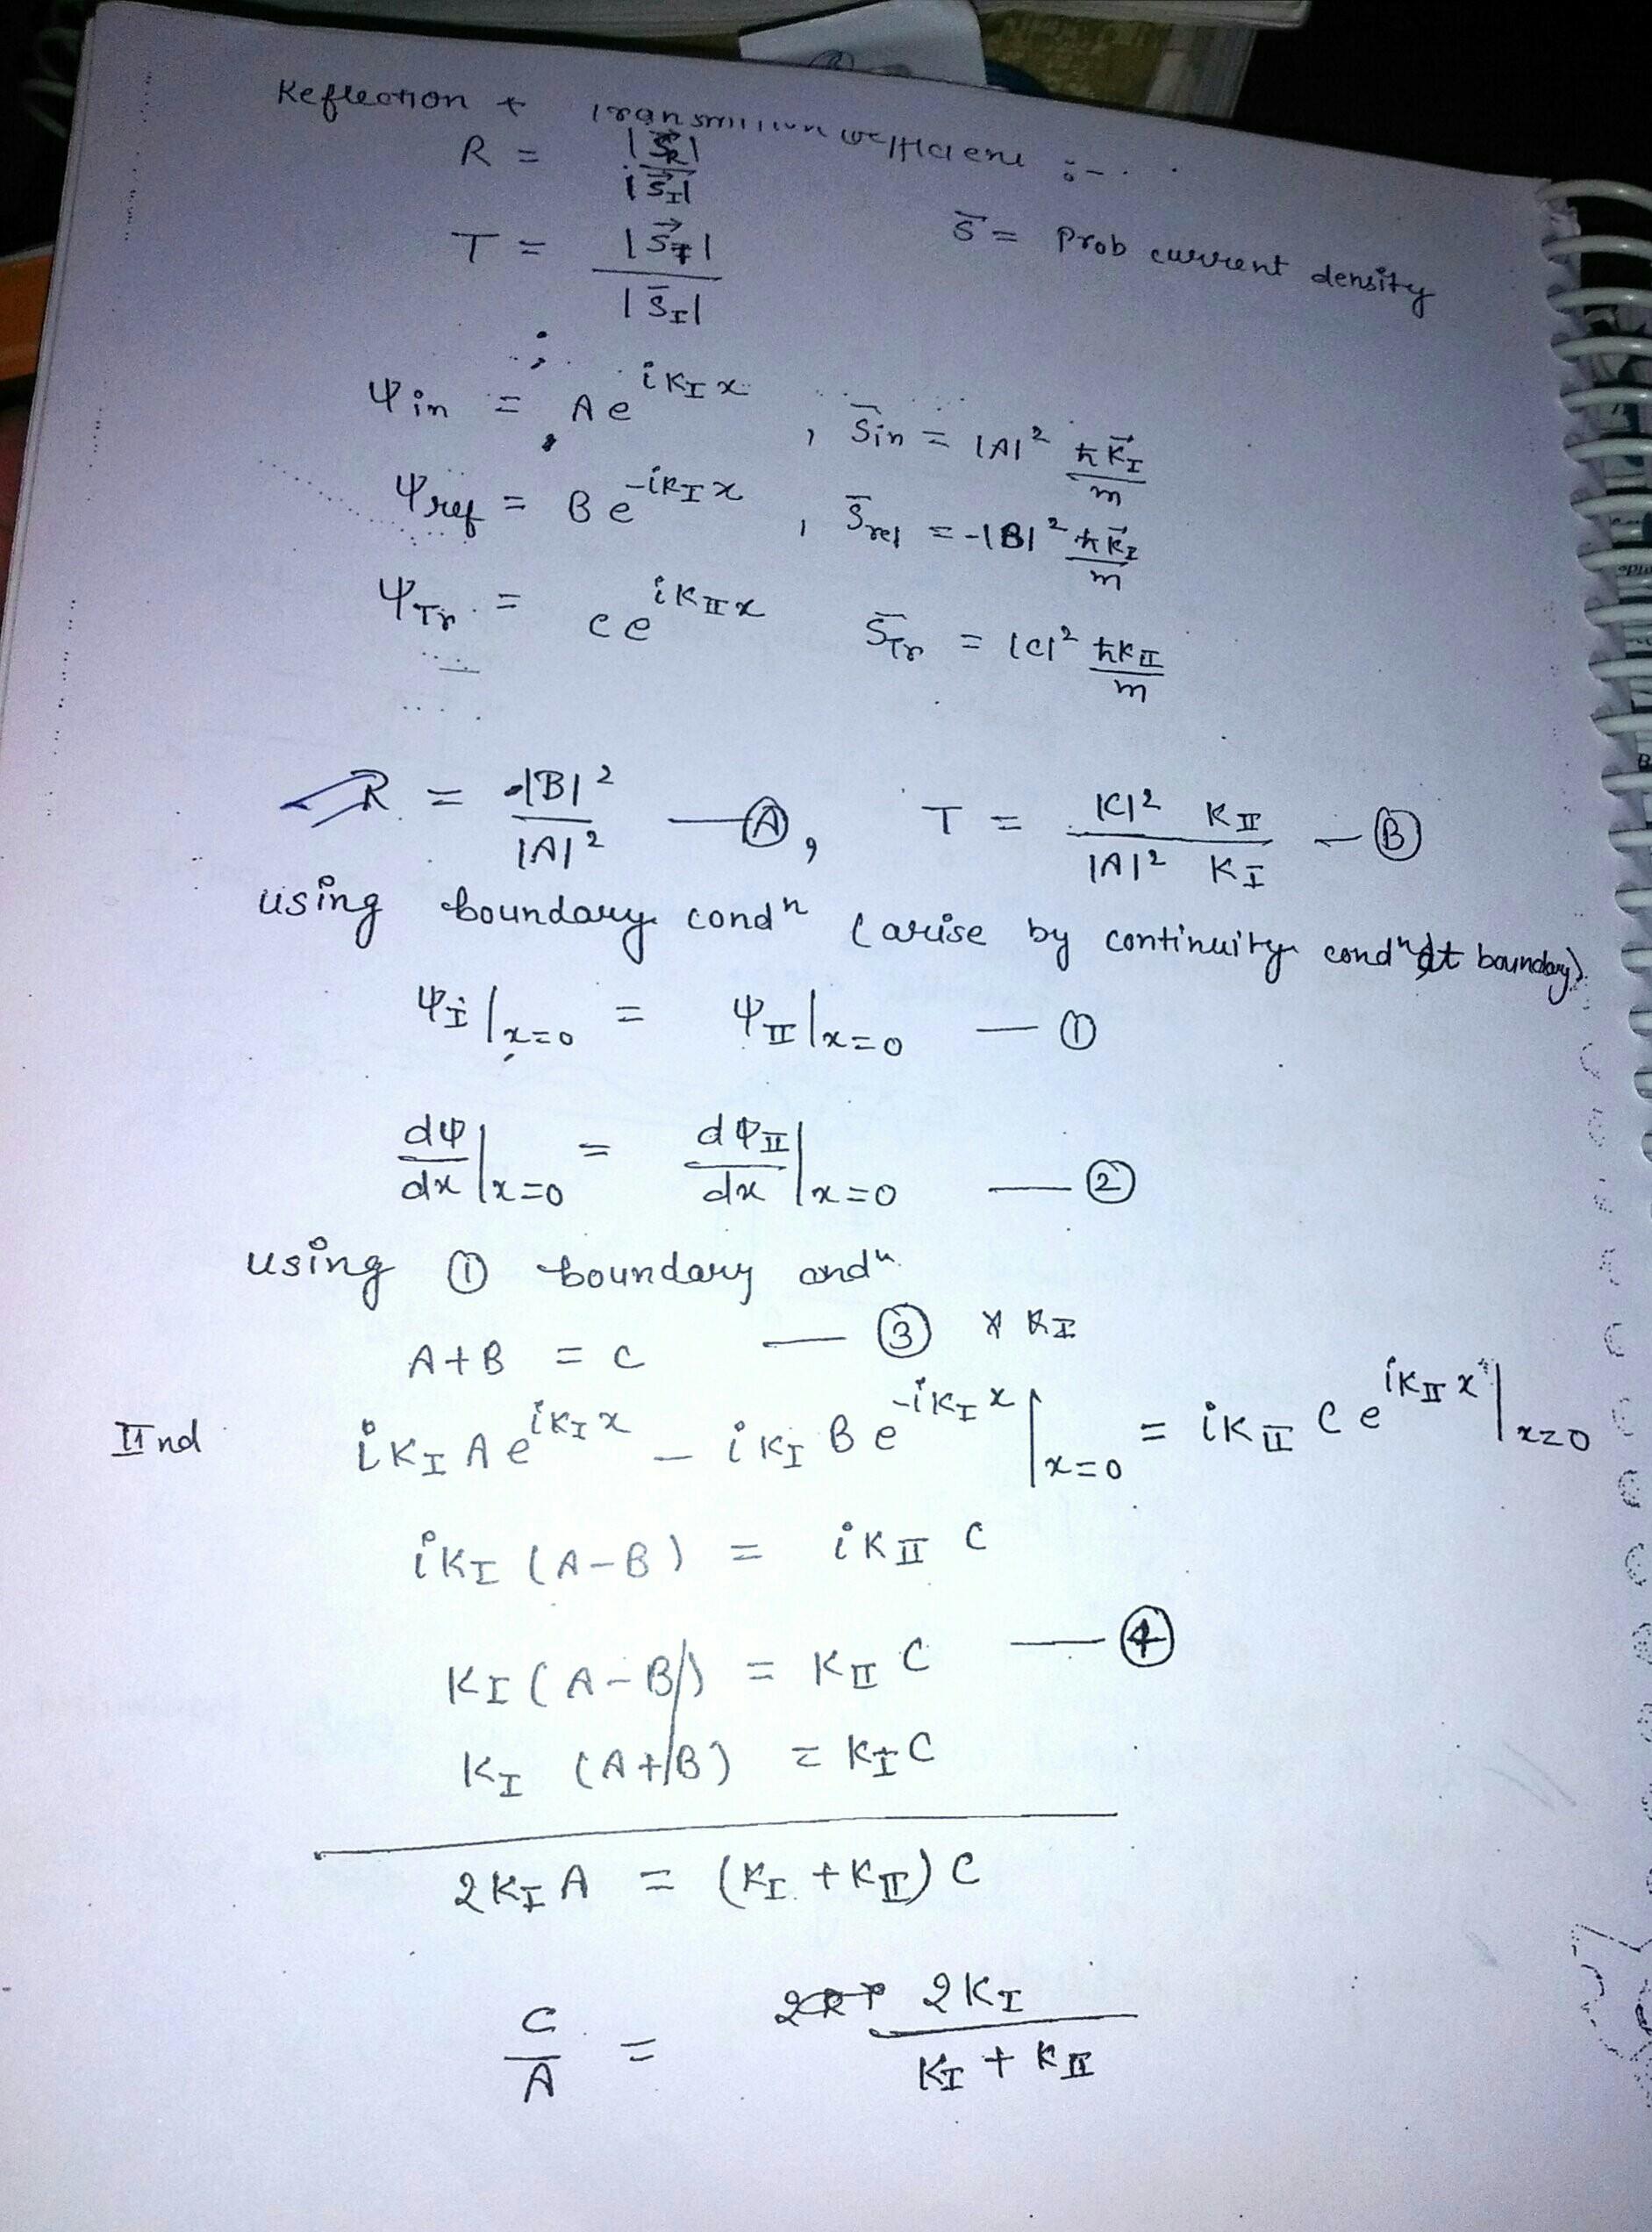 Reflection & Transmission coefficient :-
R = |S⃗R| / |S⃗I|
S̄ = Prob current density
T = |S⃗T| / |S̄I|
Ψin = A e^{iKI x} , S̄in = |A|² ħK⃗I / m
Ψref = B e^{-iKI x} , S̄ref = -|B|² ħK⃗I / m
ΨTr = C e^{iKII x} S̄Tr = |C|² ħKII / m
R = |B|² / |A|² — (A), T = |C|² KII / |A|² KI — (B)
using boundary condⁿ (arise by continuity condⁿ at boundary).
ΨI |x=0 = ΨII |x=0 — (1)
dΨ/dx |x=0 = dΨII/dx |x=0 — (2)
using (1) boundary condⁿ.
A+B = C — (3) × KI
IInd iKI A e^{iKI x} - iKI B e^{-iKI x} |x=0 = iKII C e^{iKII x} |x=0
iKI (A-B) = iKII C
KI (A-B) = KII C — (4)
KI (A+B) = KI C
2KI A = (KI + KII) C
C/A = 2KI / KI + KII